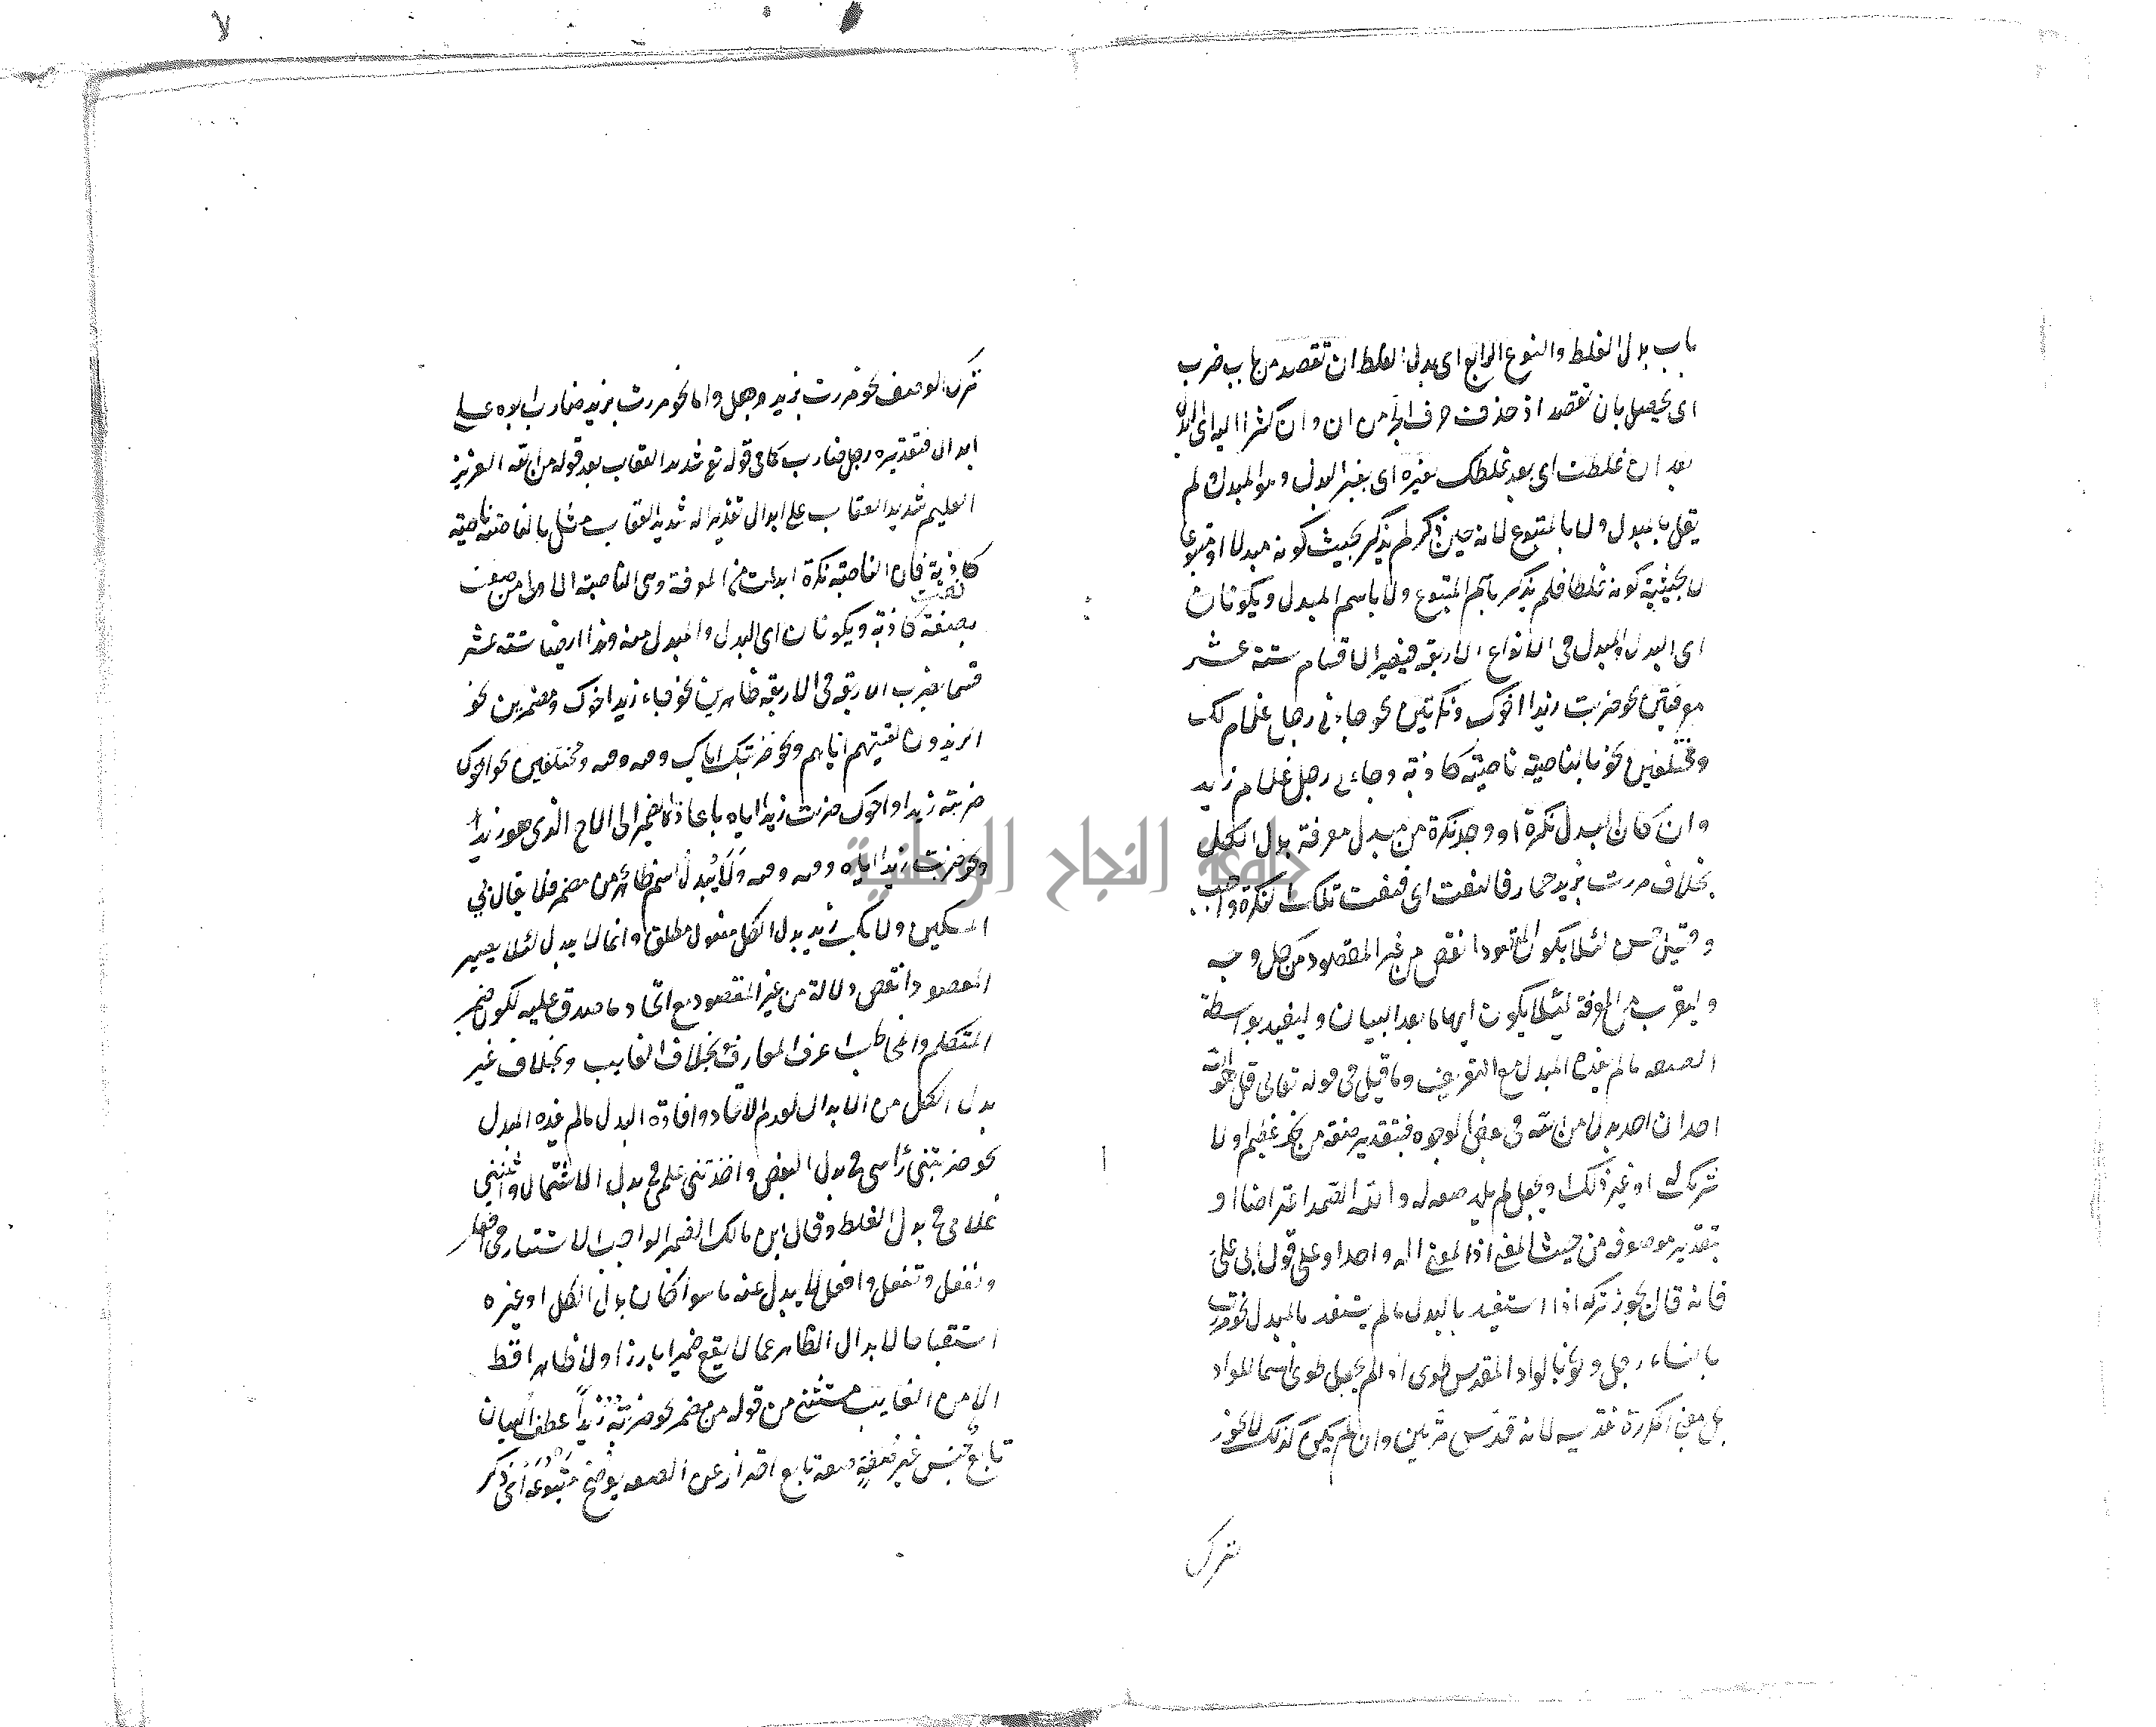 باب بدل الغلط والنوع الرابع اى بدل الغلط ان تقصد من باب ضرب
اى يحصل بان تقصد اذ حذف حرف الجر من ان وان كثير اليه اى البدل
بعد ان غلطت اى بعد غلطك بغيره اى بغير البدل وهو المبدل ولم
يقل بالمبدل ولا بالمتبوع لانه حين ذكر لم يذكر بحيث كونه مبدلا او متبوعا
بل بحيثية كونه غلطا فلم يذكر باسم المتبوع ولا باسم المبدل ويكونان
اى البدل والمبدل فى الانواع الاربعة فيصير الاقسام ستة عشر
معرفتين نحو ضربت زيدا اخوك ونكرتين نحو جاءنى رجل غلام لك
ومختلفين نحو بالناصية ناصية كاذبة وجاءنى رجل غلام زيد
وان كان البدل نكرة او وجد نكرة من مبدل معرفة بدل الكل
بخلاف مررت بزيد حمار فالنعت اى فنعت تلك النكرة واجب
وقيل حسن لئلا يكون المقصود انقص من غير المقصود من كل وجه
وليقرب من المعرفة لئلا يكون ابهاما بعد البيان وليفيد بواسطة
الصفة ما لم يفده المبدل مع التعريف وما قيل فى قوله تعالى قل هو الله
احد ان احد بدل من الله فى بعض الوجوه فبتقدير صفة من نحو عظيم او لا
شريك له او غير ذلك ويجعل لم يلد صفة له والله الصمد اعتراضا او
بتقدير موصوف من حيث المعنى اذ المعنى اله واحد او على قول ابى على
فانه قال يجوز تركه اذا استفيد بالبدل ما لم يستفد بالمبدل نحو مررت
بابيك رجل ونحو بالواد المقدس طوى اذا لم يجعل طوى اسما للواد
بل معنى المكررة تقديسه لانه قدس مرتين وان لم يكن كذلك لا يجوز
ترك
ترك الوصف نحو مررت بزيد رجل واما نحو مررت بزيد ضارب ابوه على
ابدال فتقديره رجل ضارب كما فى قوله تع شديد العقاب بعد قوله من الله العزيز
العليم شديد العقاب على ابدال تقديره اله شديد العقاب مثل بالناصية ناصية
كاذبة فان الناصية نكرة ابدلت من المعرفة وهى الناصية الاولى من وصفت
نعتت
بصفة كاذبة ويكونان اى البدل والمبدل منه وهذا ايضا ستة عشر
قسما بضرب الاربعة فى الاربعة ظاهرين نحو جاء زيد اخوك ومضمرين نحو
الزيدون لقيتهم اياهم ونحو ضربتك اياك ومه ومه ومختلفين نحو اخوك
ضربته زيدا واخوك ضربت زيدا اياه باعادة الضمير الى الاخ الذى هو زيد
ونحو ضربت زيدا اياه ومه ومه ولا يبدل اسم ظاهر من مضمر فلا يقال بى
المسكين ولا بك زيد بدل الكل مفعول مطلق وانما لا يبدل لئلا يصير
المقصود انقص دلالة من غير المقصود مع اتحاد ما صدق عليه لكون ضمير
المتكلم والمخاطب اعرف المعارف بخلاف الغايب وبخلاف غير
بدل الكل من الابدال لعدم الاتحاد وافادة البدل ما لم يفده المبدل
نحو ضربتنى رأسى فى بدل البعض واخذتنى علمى فى بدل الاشتمال
غلامى فى بدل الغلط وقال ابن مالك الضمير الواجب الاستتار فى افعل
ونفعل وتفعل وافعل لا يبدل عنه ما سواء كان بدل الكل او غيره
استقباحا لابدال الظاهر عما لا يقع ضميرا بارزا ولا ظاهرا قط
الا من الغايب مستثنى من قوله من مضمر نحو ضربته زيدا عطف البيان
تابع جنس غير صفة صفة تابع احتراز عن الصفة يوضح متبوعه اى ذكر
جامعة النجاح الوطنية